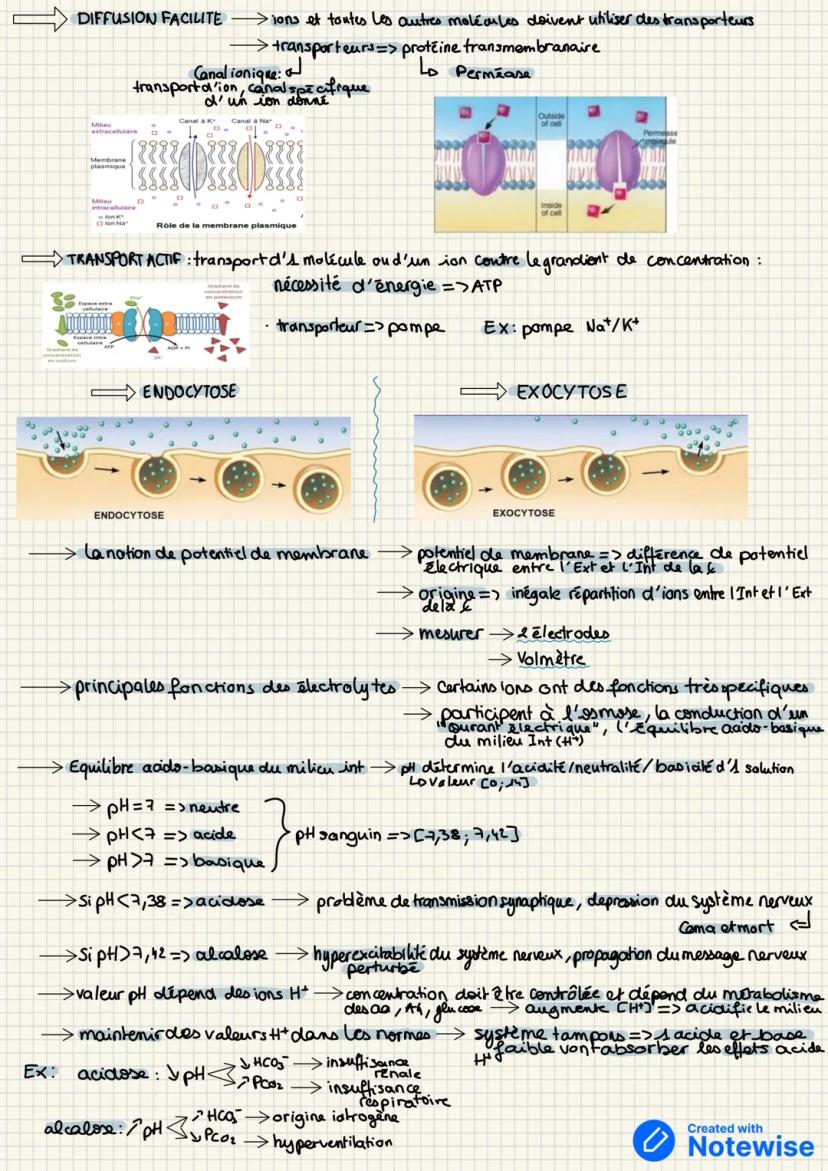 DIFFUSION FACILITE → ions et toutes les autres molécules doivent utiliser des transporteurs
→ transporteurs => protéine transmembranaire
Canal ionique:
Perméase
transport d'ion, canal spécifique
d'un ion donné
Milieu extracellulaire
Canal à K+
Canal à Na+
Membrane plasmique
Milieu intracellulaire
Ion K+
Ion Na+
Rôle de la membrane plasmique
Outside of cell
Permease molecule
Inside of cell
TRANSPORT ACTIF : transport d'1 molécule ou d'un ion contre le grandient de concentration :
nécessité d'énergie => ATP
Gradient de concentration en potassium
Espace extra cellulaire
3Na+
Espace intra cellulaire
ATP
ADP + Pi
2K+
Gradient de concentration en sodium
· transporteur => pompe Ex: pompe Na+/K+
ENDOCYTOSE
EXOCYTOSE
ENDOCYTOSE
EXOCYTOSE
→ la notion de potentiel de membrane → potentiel de membrane => différence de potentiel
électrique entre l'Ext et l'Int de la ¢
→ origine => inégale répartition d'ions entre l'Int et l'Ext
de la ¢
→ mesurer → 2 électrodes
→ Volmètre
→ principales fonctions des électrolytes → Certains ions ont des fonctions très specifiques
→ participent à l'osmose, la conduction d'un
"courant électrique", l'équilibre acido-basique
du milieu Int (H+)
→ Equilibre acido-basique du milieu int → pH détermine l'acidité/neutralité/basicité d'1 solution
↳ valeur [0;14]
→ pH=7 => neutre
→ pH<7 => acide
pH sanguin => [7,38 ; 7,42]
→ pH>7 => basique
→ Si pH<7,38 => acidose → problème de transmission synaptique, depression du système nerveux
Coma et mort
→ Si pH>7,42 => alcalose → hyperexcitabilité du système nerveux, propagation du message nerveux
perturbé
→ valeur pH dépend des ions H+ → concentration doit être contrôlée et dépend du métabolisme
des aa, AG, glucose → augmente [H+] => acidifie le milieu
→ maintenir des valeurs H+ dans les normes → système tampons => 1 acide et base
faible vont absorber les effets acide
H+
Ex: acidose : ↘ pH
↘ HCO3- → insuffisance
rénale
↗ PCO2 → insuffisance
respiratoire
alcalose: ↗ pH
↗ HCO3- → origine iatrogène
↘ PCO2 → hyperventilation
Created with
Notewise